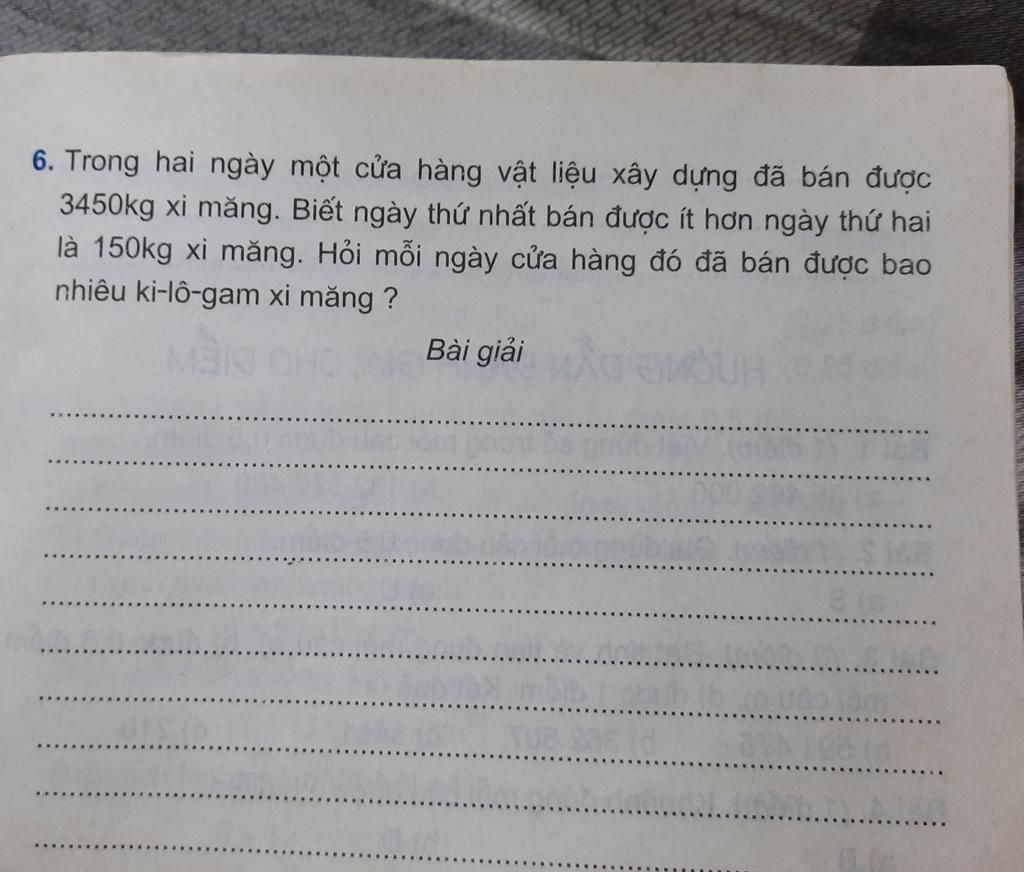 6. Trong hai ngày một cửa hàng vật liệu xây dựng đã bán được
3450kg xi măng. Biết ngày thứ nhất bán được ít hơn ngày thứ hai
là 150kg xi măng. Hỏi mỗi ngày cửa hàng đó đã bán được bao
nhiêu ki-lô-gam xi măng ?
Bài giải